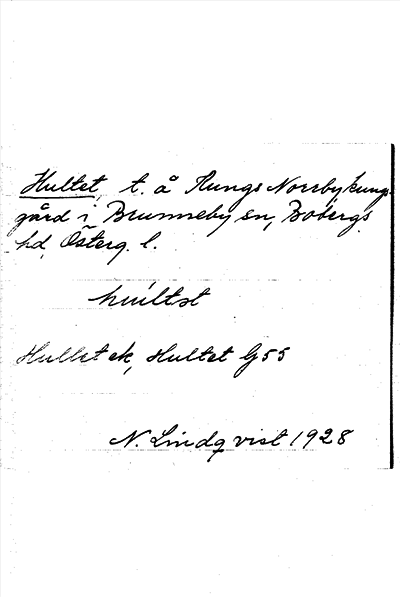 Hultet, t. å Kungs Norrby kungs-
gård i Brunneby sn, Bobergs
hd, Österg. l.
hul̀tət
Hultet ek, Hultet G55
N. Lindqvist 1928